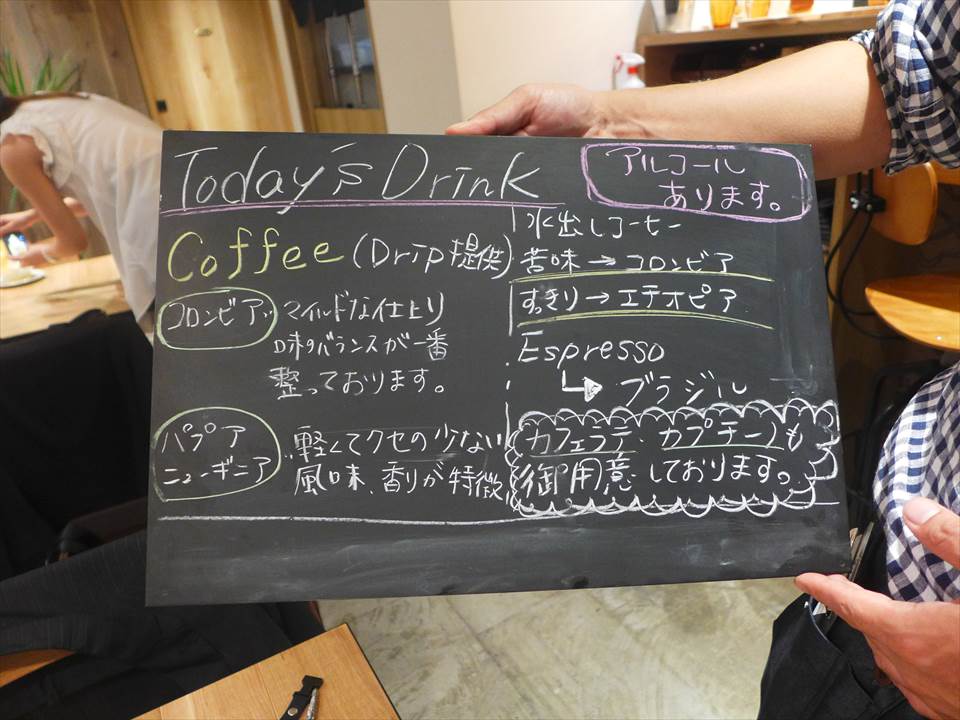 Today's Drink
アルコール
あります。
Coffee (Drip提供)
コロンビア
マイルドな仕上り
味のバランスが一番
整っております。
パプア
ニューギニア
軽くてクセの少ない
風味、香りが特徴
水出しコーヒー
苦味→コロンビア
すっきり→エチオピア
Espresso
ブラジル
カフェラテ・カプチーノも
御用意しております。